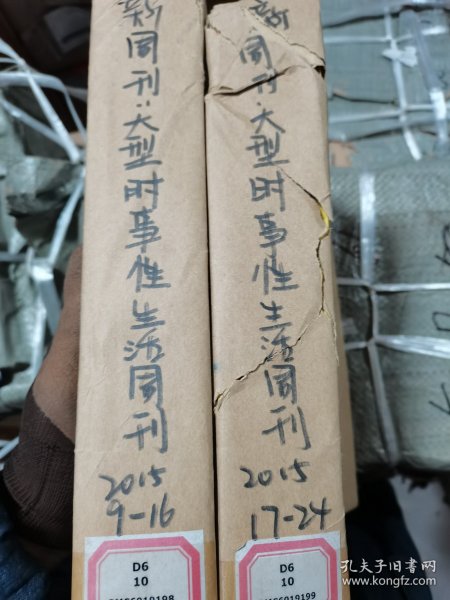 新周刊:大型时事性生活周刊
2015
9-16
D6
10
新周刊:大型时事性生活周刊
2015
17-24
D6
10
孔夫子旧书网
www.kongfz.com